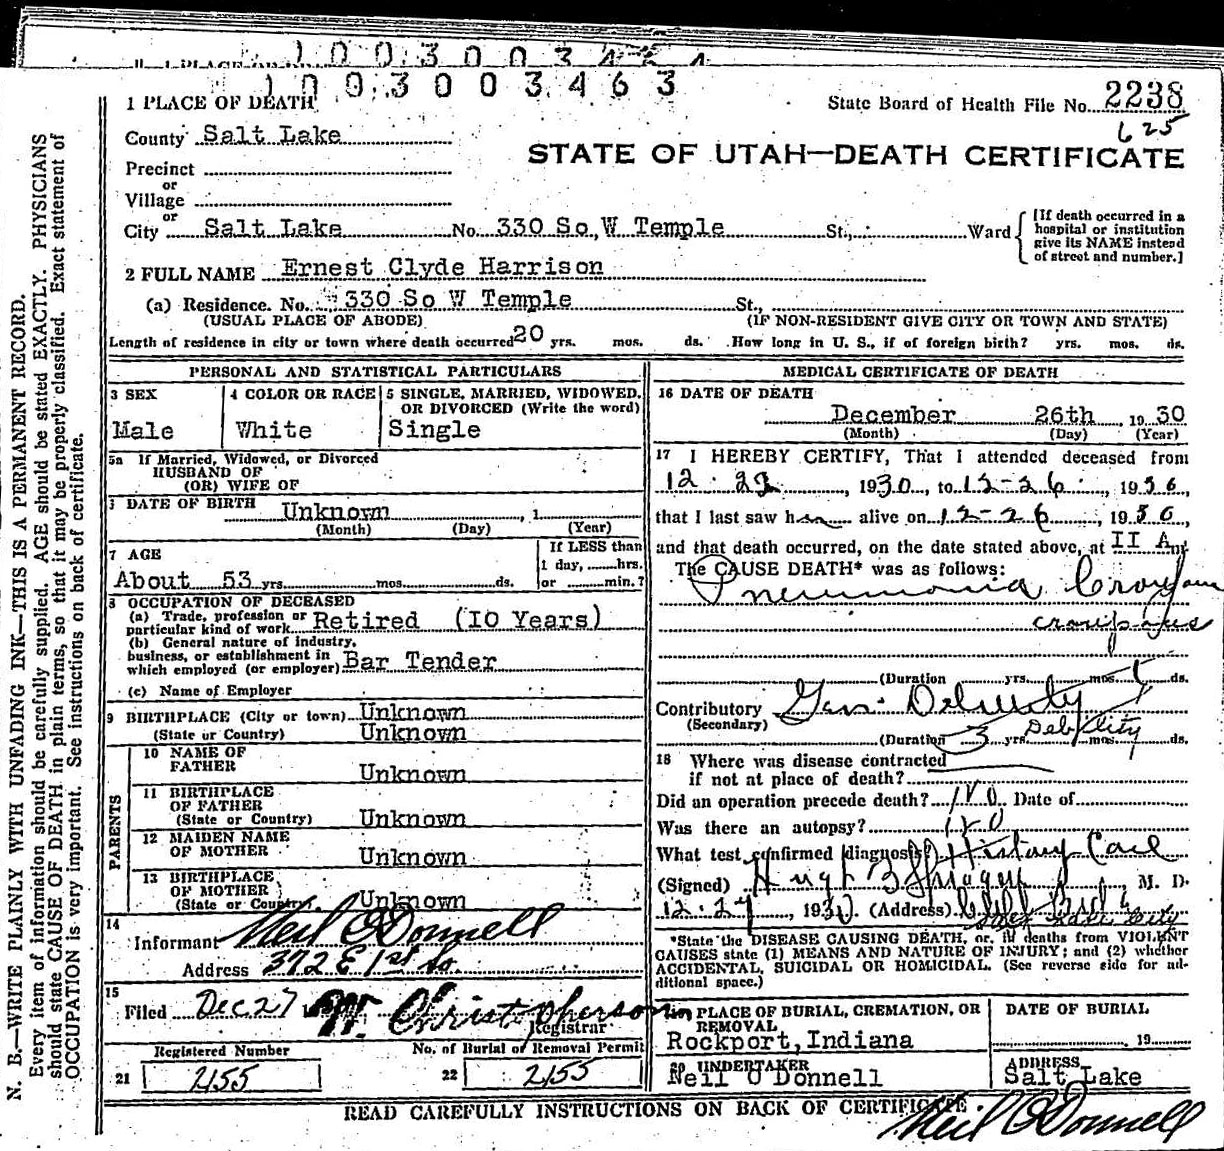 1 PLACE OF DEATH
1003003463
State Board of Health File No. 2238
625
County Salt Lake
STATE OF UTAH—DEATH CERTIFICATE
Precinct
or
Village
or
City Salt Lake No. 330 So, W Temple St., Ward
[If death occurred in a hospital or institution give its NAME instead of street and number.]
2 FULL NAME Ernest Clyde Harrison
(a) Residence. No. 330 So W Temple St.,
(USUAL PLACE OF ABODE) (IF NON-RESIDENT GIVE CITY OR TOWN AND STATE)
Length of residence in city or town where death occurred 20 yrs. mos. ds. How long in U. S., if of foreign birth? yrs. mos. ds.
N. B.—WRITE PLAINLY WITH UNFADING INK—THIS IS A PERMANENT RECORD.
Every item of information should be carefully supplied. AGE should be stated EXACTLY. PHYSICIANS
should state CAUSE OF DEATH in plain terms, so that it may be properly classified. Exact statement of
OCCUPATION is very important. See instructions on back of certificate.
PERSONAL AND STATISTICAL PARTICULARS
3 SEX
Male
4 COLOR OR RACE
White
5 SINGLE, MARRIED, WIDOWED,
OR DIVORCED (Write the word)
Single
5a If Married, Widowed, or Divorced
HUSBAND OF
(OR) WIFE OF
DATE OF BIRTH Unknown , 1
(Month) (Day) (Year)
7 AGE
About 53 yrs. mos. ds.
If LESS than
1 day, hrs.
or min.?
8 OCCUPATION OF DECEASED
(a) Trade, profession or
particular kind of work Retired (10 Years)
(b) General nature of industry,
business, or establishment in
which employed (or employer) Bar Tender
(c) Name of Employer
9 BIRTHPLACE (City or town) Unknown
(State or Country) Unknown
PARENTS
10 NAME OF
FATHER Unknown
11 BIRTHPLACE
OF FATHER
(State or Country) Unknown
12 MAIDEN NAME
OF MOTHER Unknown
13 BIRTHPLACE
OF MOTHER
(State or Country) Unknown
14
Informant Neil O'Donnell
Address 372 E 1st So.
15
Filed Dec 27 Christopherson
Registrar
Registered Number
21 2155
No. of Burial or Removal Permit
22 2155
MEDICAL CERTIFICATE OF DEATH
16 DATE OF DEATH
December 26th, 1930
(Month) (Day) (Year)
17 I HEREBY CERTIFY, That I attended deceased from
12-22, 1930, to 12-26, 1930,
that I last saw h alive on 12-26, 1930,
and that death occurred, on the date stated above, at 11 A m
The CAUSE DEATH* was as follows:
Pneumonia
croupous
(Duration yrs. mos. ds.
Contributory Gen. Debility
(Secondary) Debility
(Duration 3 yrs. mos. ds.
18 Where was disease contracted
if not at place of death?
Did an operation precede death? No Date of
Was there an autopsy? No
What test confirmed diagnosis? History
(Signed) Hugh B M. D.
12-27, 1930 (Address)
Salt Lake City
*State the DISEASE CAUSING DEATH, or, in deaths from VIOLENT
CAUSES state (1) MEANS AND NATURE OF INJURY; and (2) whether
ACCIDENTAL, SUICIDAL OR HOMICIDAL. (See reverse side for ad-
ditional space.)
PLACE OF BURIAL, CREMATION, OR
REMOVAL
Rockport, Indiana
DATE OF BURIAL
19
20 UNDERTAKER
Neil O Donnell
ADDRESS
Salt Lake
READ CAREFULLY INSTRUCTIONS ON BACK OF CERTIFICATE
Neil O'Donnell